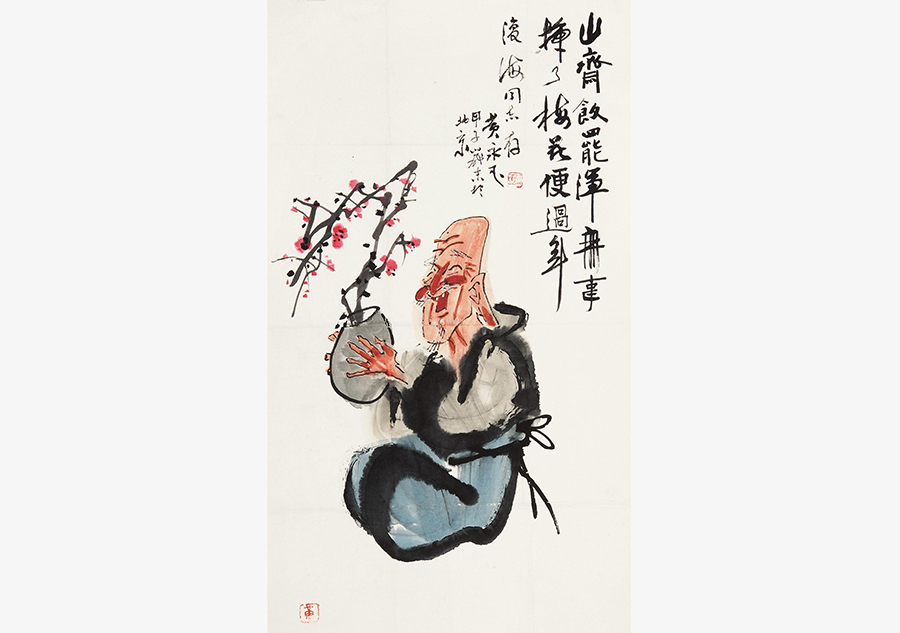 山齋飲罷渾無事
插了梅花便過年
復海同志存
黃永玉
甲子歲末於
北京
黃